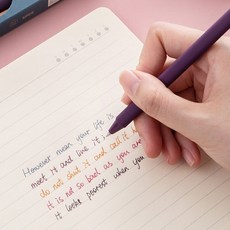 However mean your life is
meet it and live it
do not shut it and call it
it is not so bad as you are
it looks poorest when you